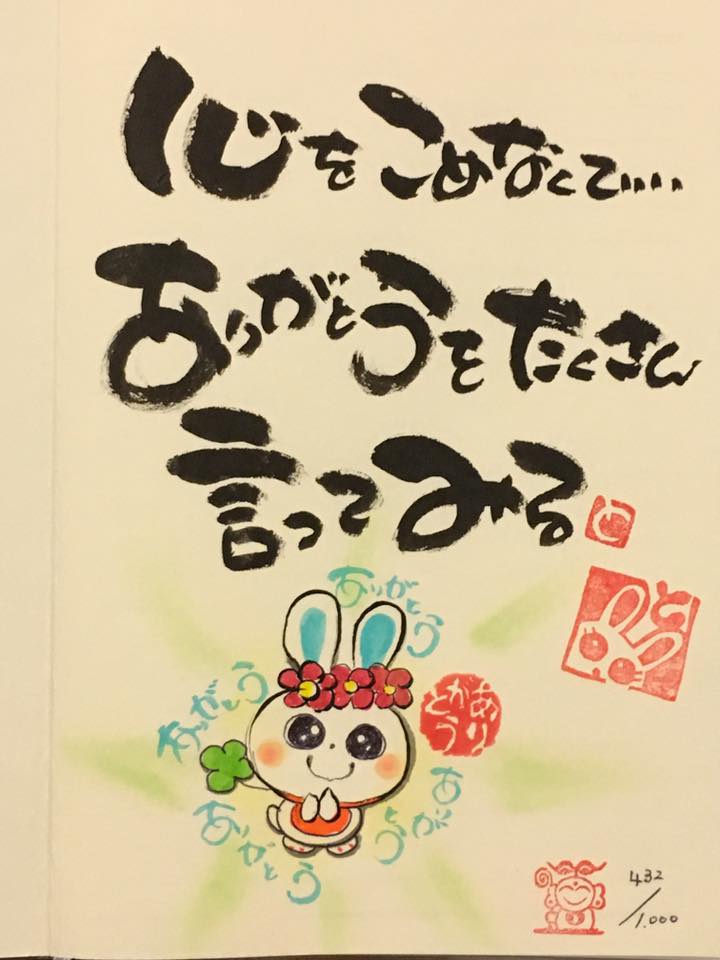 心をこめなくて‥‥
ありがとうをたくさん
言ってみる
と
とり
ありがとう
ありがとう
ありがとう
ありがとう
ありがとう
432/1.000